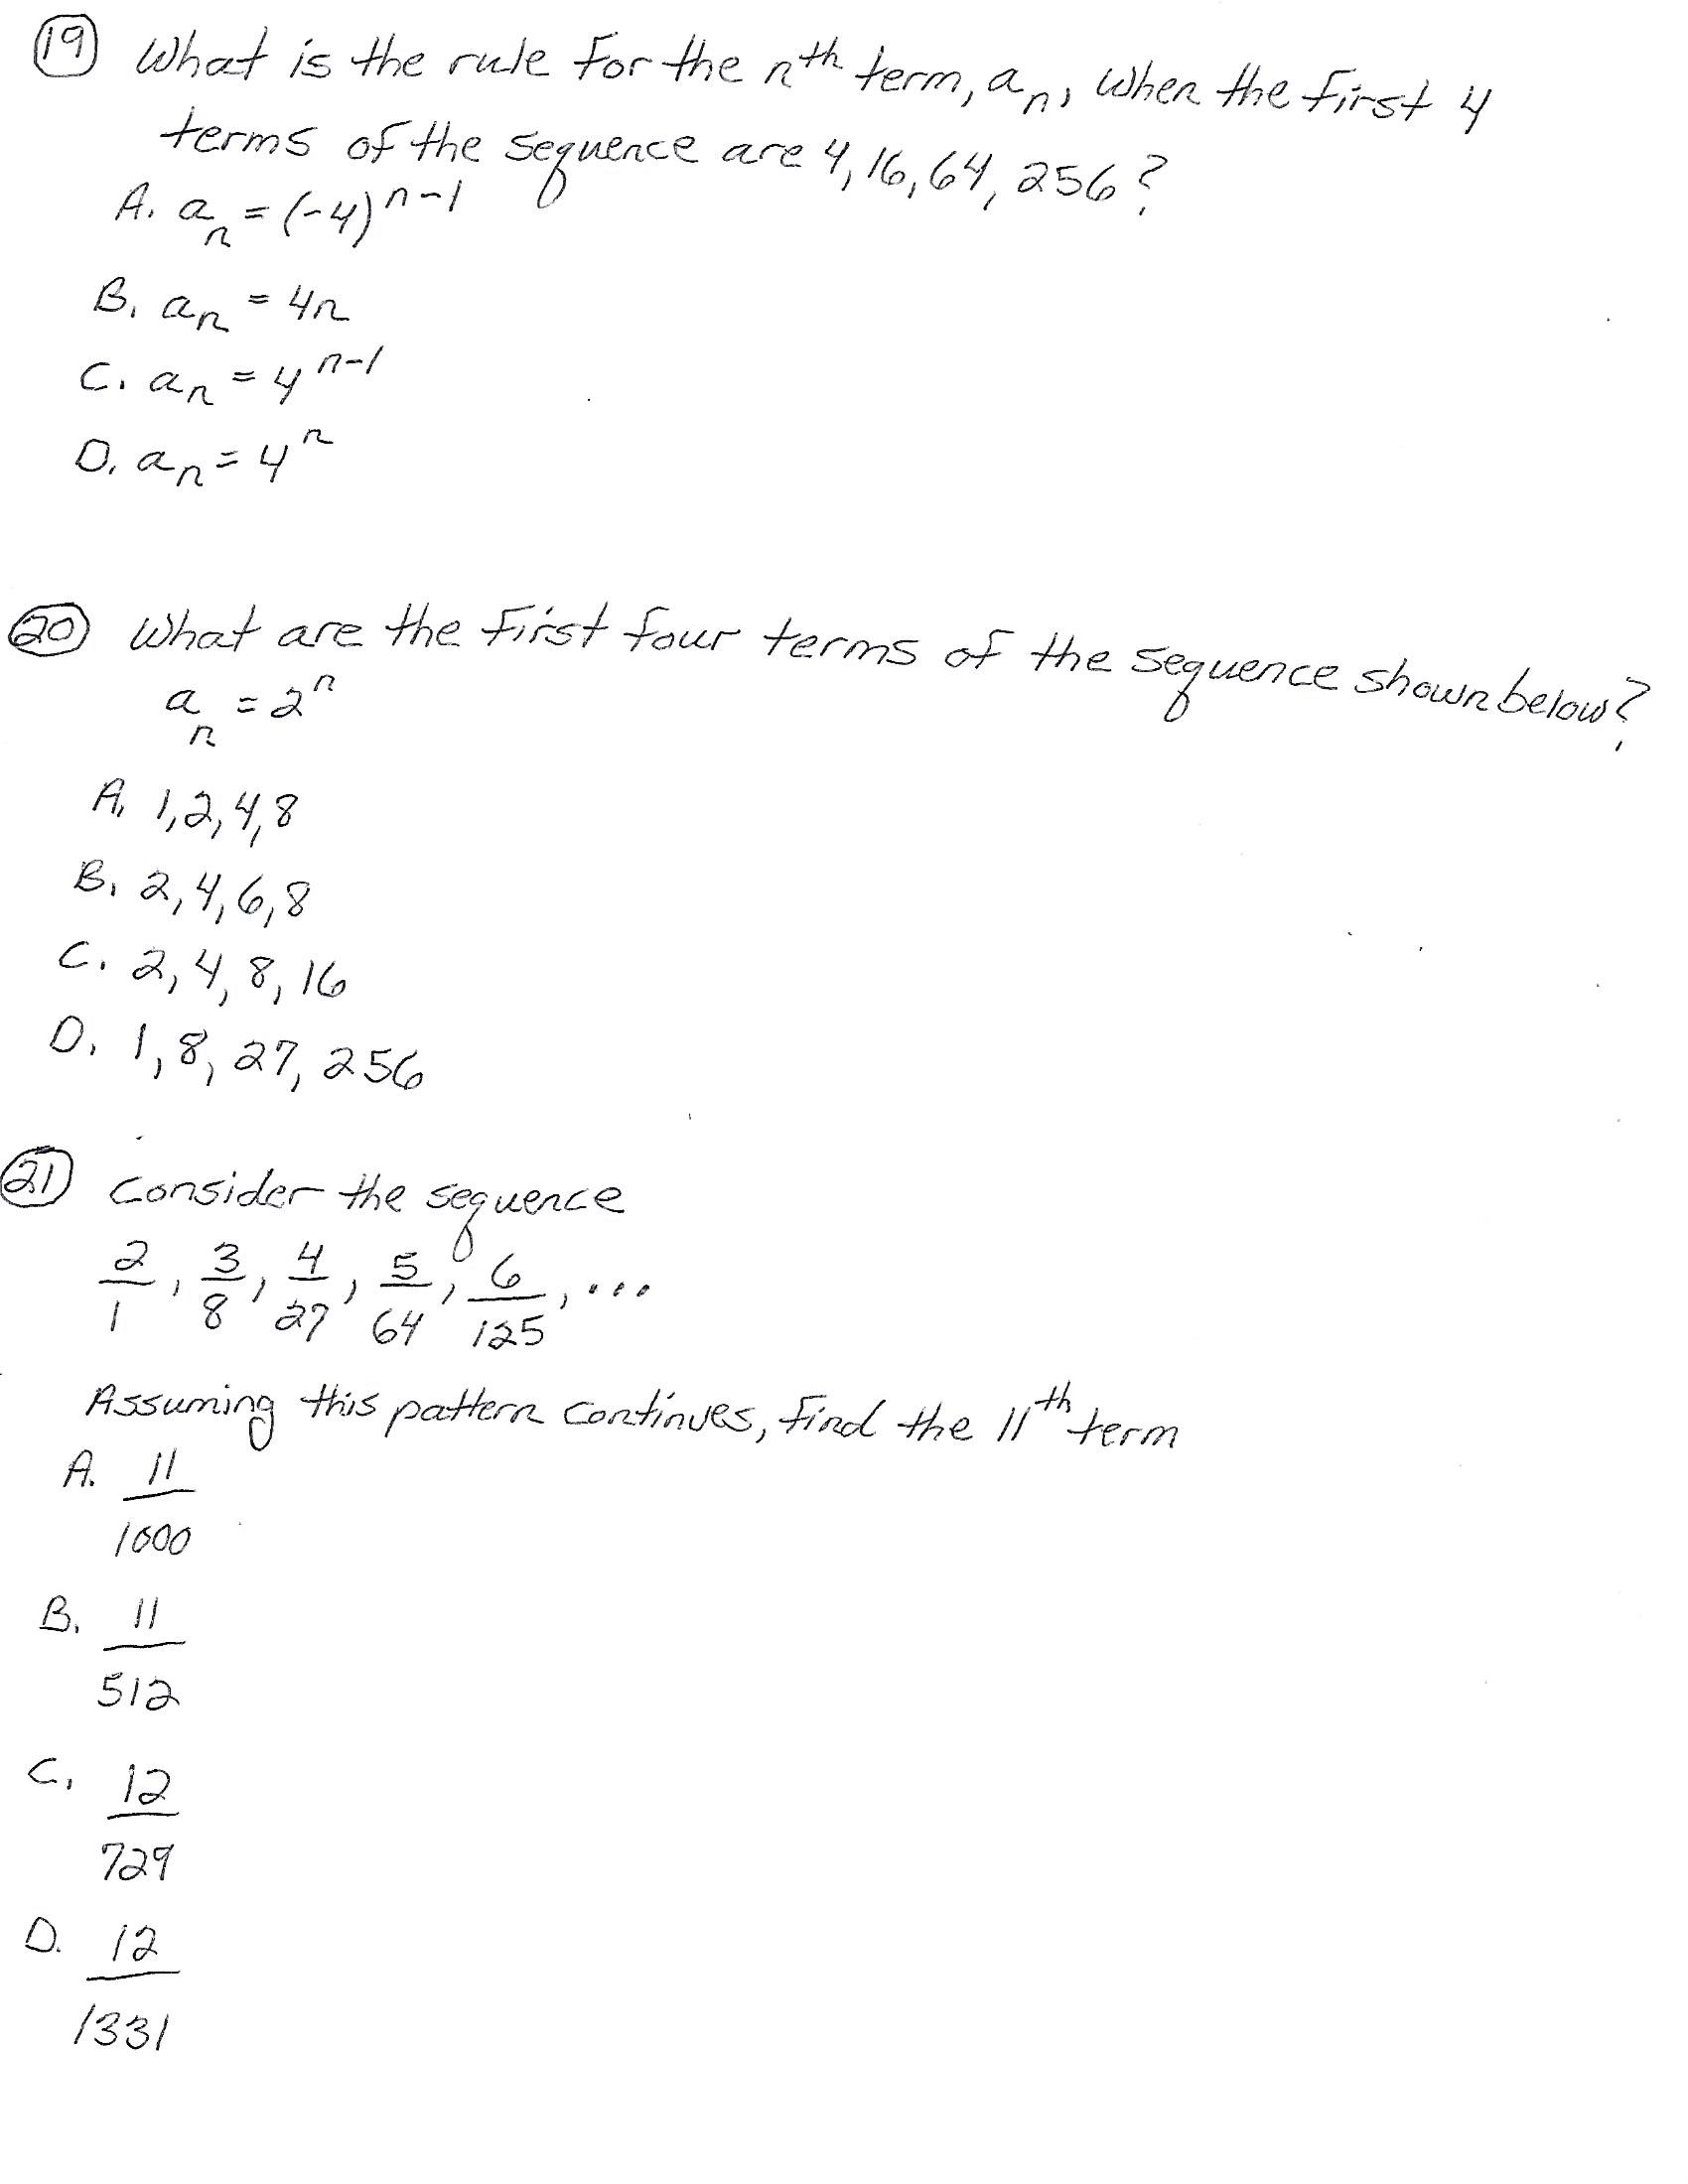 19 What is the rule for the nth term, an, when the first 4
terms of the sequence are 4, 16, 64, 256?
A. an = (-4)^n-1
B. an = 4n
C. an = 4^n-1
D. an = 4^n
20 What are the first four terms of the sequence shown below?
an = 2^n
A. 1, 2, 4, 8
B. 2, 4, 6, 8
C. 2, 4, 8, 16
D. 1, 8, 27, 256
21 Consider the sequence
2/1, 3/8, 4/27, 5/64, 6/125, ...
Assuming this pattern continues, find the 11th term
A. 11/1000
B. 11/512
C. 12/729
D. 12/1331